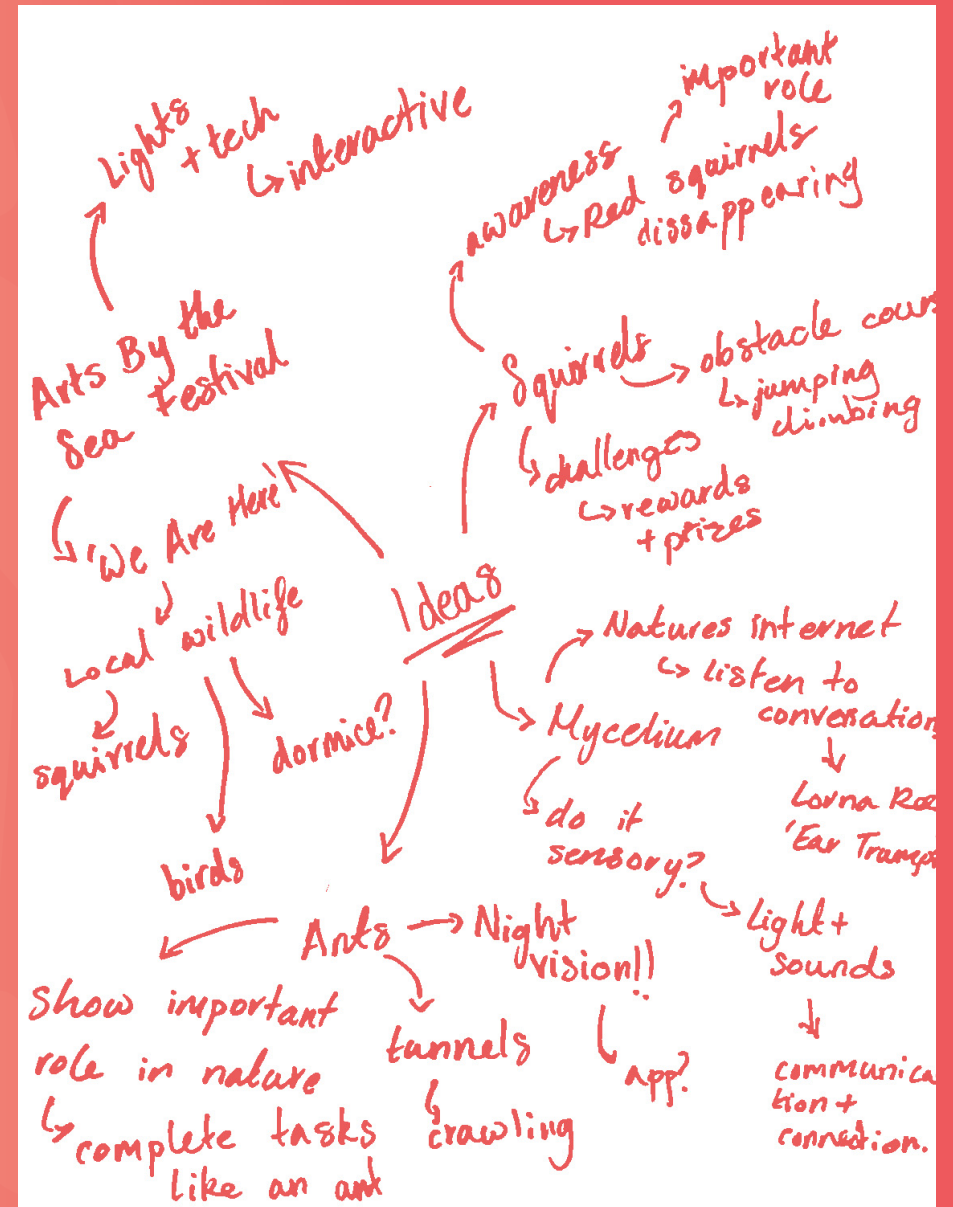 Lights
+ tech
↳ interactive
Arts By the
Sea Festival
'We Are Here'
Local wildlife
squirrels
birds
dormice?
Ideas
Squirrels
awareness
↳ Red squirrels
dissappearing
important
role
obstacle cours
↳ jumping
climbing
challenges
↳ rewards
+ prizes
Mycelium
Natures internet
↳ listen to
convenation
Lorna Ree
'Ear Trump
do it
sensory?
Light +
sounds
communica
tion +
connection.
Ants
Night
vision!!
app?
tunnels
crawling
Show important
role in nature
↳ complete tasks
like an ant